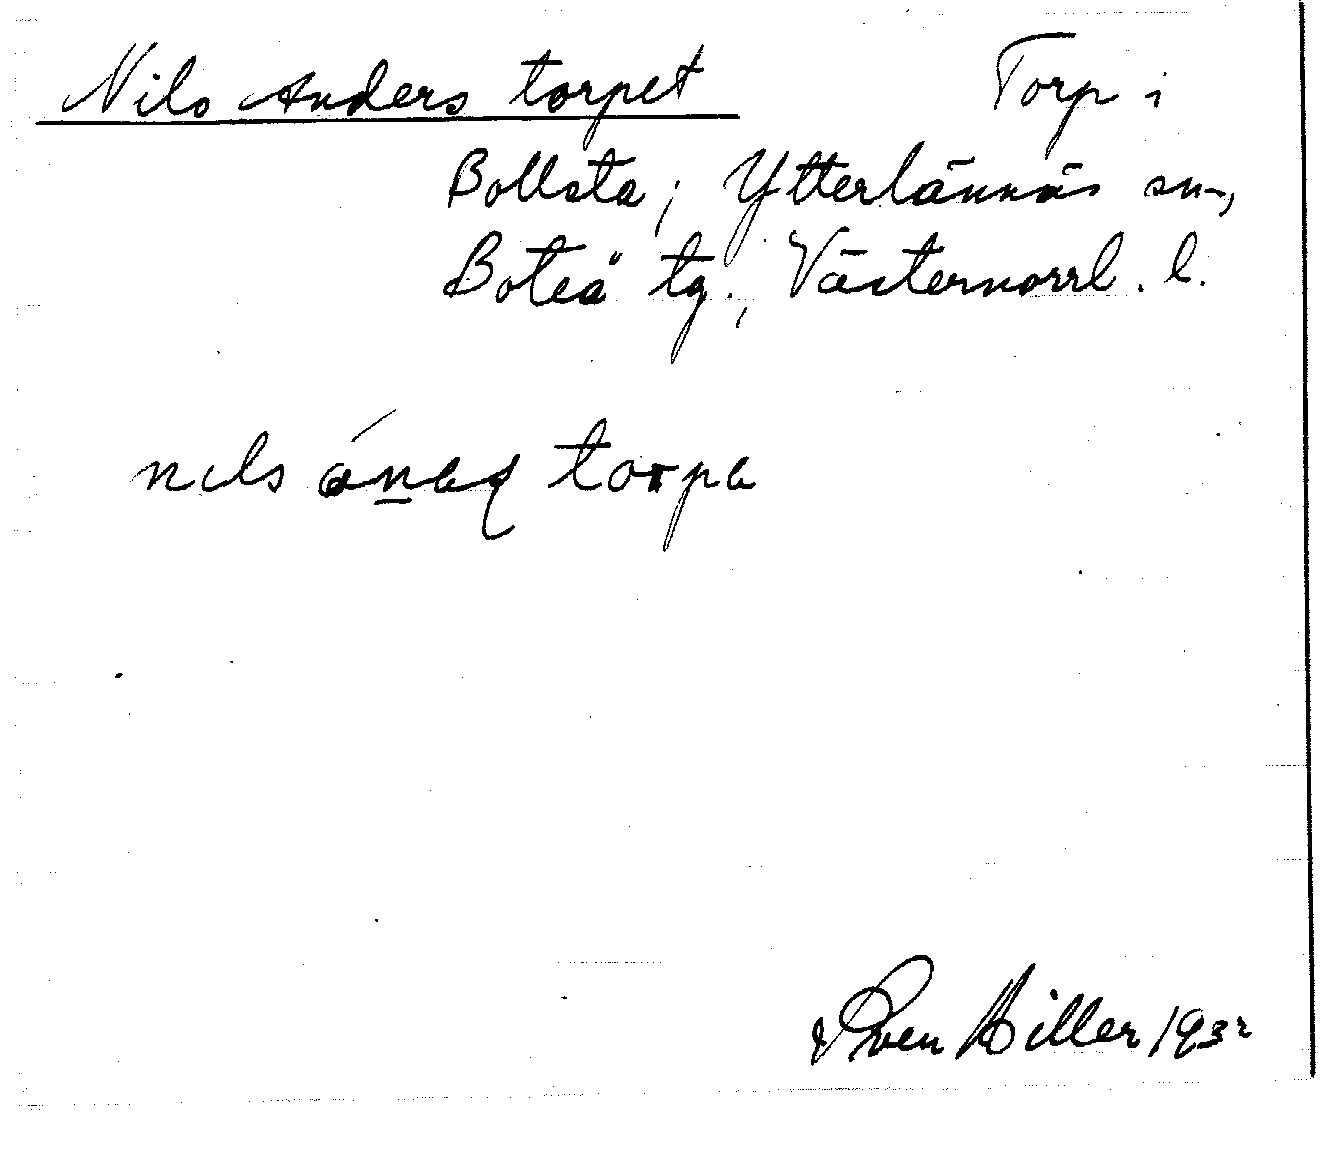 Nils Anders torpet Torp i
Bollsta, Ytterlännäs sn,
Boteå tg., Västernorrl. l.
nils torpa
Sven Hiller 1932